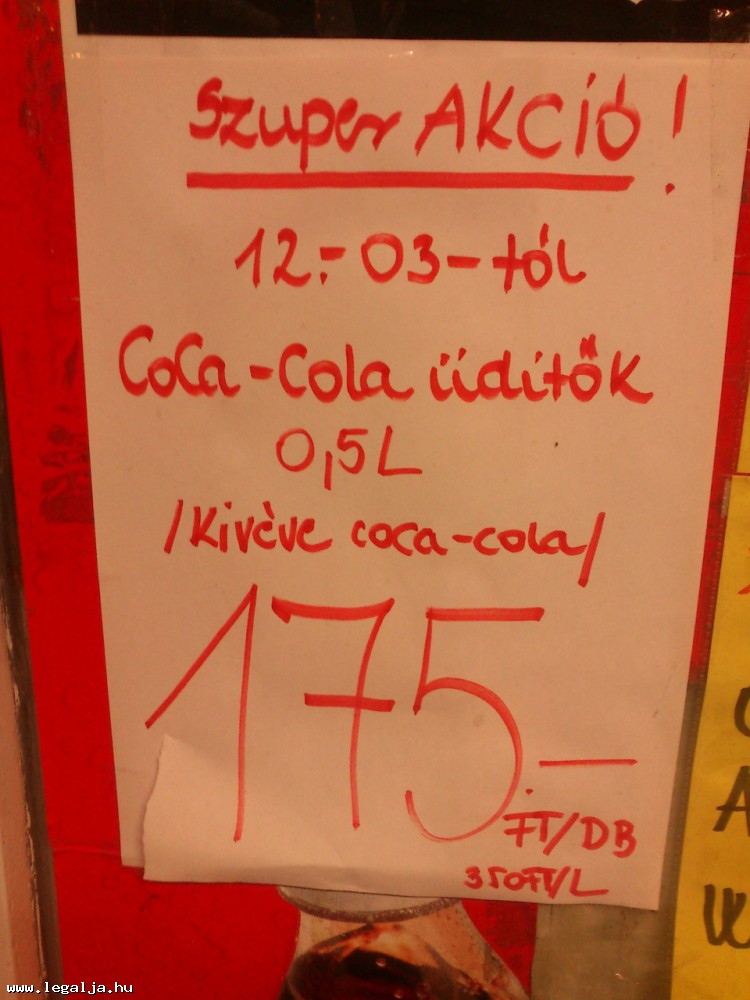 Szuper AKCIÓ!
12.-03-tól
CoCa-Cola üdítők
0,5L
/Kivève coca-cola/
175.-
FT/DB
350Ft/L
www.legalja.hu